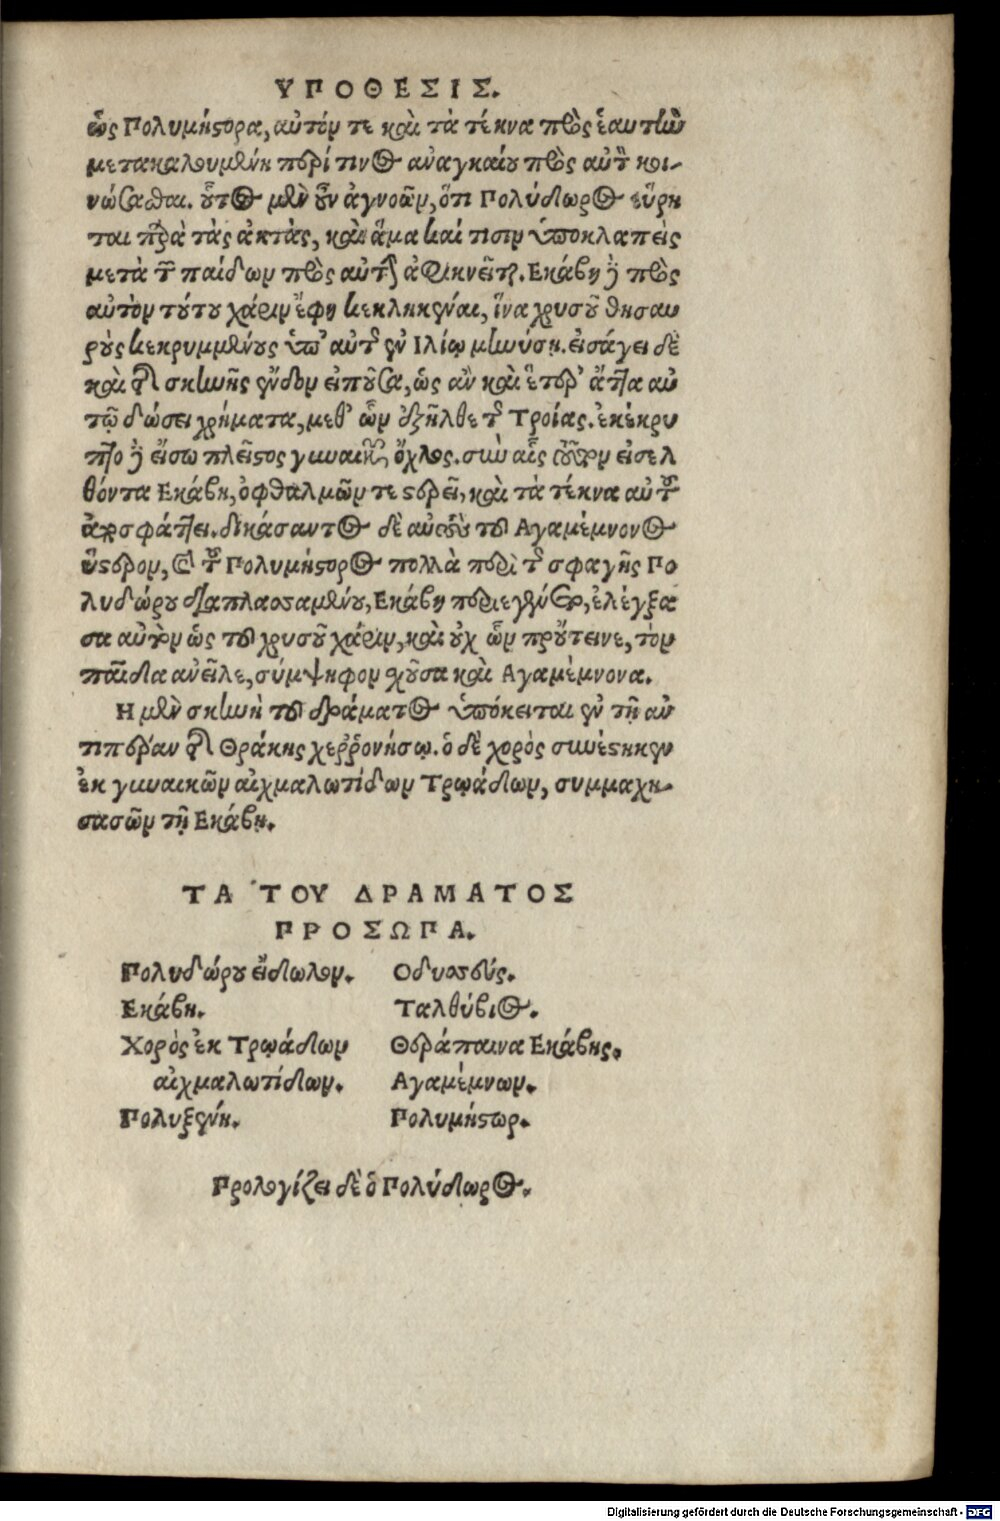 ΥΠΟΘΕΣΙΣ.
ὡς Πολυμήστορα, αὐτόν τε καὶ τὰ τέκνα πρὸς ἑαυτὴν
μετακαλουμένη περί τινος ἀναγκαίου πρὸς αὐτὴν κοι-
νώσασθαι. οὗτος μὲν οὖν ἀγνοῶν, ὅτι Πολύδωρος εὕρη
ται παρὰ τὰς ἀκτὰς, καὶ ἅμα καί τισιν ὑποκλαπεὶς
μετὰ τῶν παίδων πρὸς αὐτὴν ἀφικνεῖται. Εκάβη δὲ πρὸς
αὐτὸν τούτου χάριν ἔφη κεκληκέναι, ἵνα χρυσοῦ θησαυ
ροὺς κεκρυμμένους ὑπ' αὐτῆς ἐν Ιλίῳ μηνύσῃ. εἰσάγει δὲ
καὶ τῆς σκηνῆς ἔνδον εἰποῦσα, ὡς ἂν καὶ ἕτερ' ἄττα αὐ
τῷ δώσει χρήματα, μεθ' ὧν ἐξῆλθε τῆς Τροίας. ἐκέκρυ
πτο δὲ εἴσω πλεῖστος γυναικῶν ὄχλος. σὺν αἷς οὗτον εἰσελ
θόντα Εκάβη, ὀφθαλμῶν τε στερεῖ, καὶ τὰ τέκνα αὐτοῦ
ἀποσφάττει. δικάσαντος δὲ αὐτοὺς τοῦ Αγαμέμνονος
ὕστερον, καὶ τοῦ Πολυμήστορος πολλὰ περὶ τῆς σφαγῆς Πο
λυδώρου διαπλασαμένου, Εκάβη περιεγένετο, ἐλέγξα
σα αὐτὸν ὡς τοῦ χρυσοῦ χάριν, καὶ οὐχ ὧν προὔτεινε, τὸν
παῖδα ἀνεῖλε, σύμψηφον σχοῦσα καὶ Αγαμέμνονα.
Η μὲν σκηνὴ τοῦ δράματος ὑπόκειται ἐν τῇ ἀν
τιπέραν τῆς Θράκης χερρονήσῳ. ὁ δὲ χορὸς συνέστηκεν
ἐκ γυναικῶν αἰχμαλωτίδων Τρῳάδων, συμμαχη-
σασῶν τῇ Εκάβῃ.
ΤΑ ΤΟΥ ΔΡΑΜΑΤΟΣ
ΠΡΟΣΩΠΑ.
Πολυδώρου εἴδωλον. Οδυσσεύς.
Εκάβη. Ταλθύβιος.
Χορὸς ἐκ Τρῳάδων Θεράπαινα Εκάβης.
αἰχμαλωτίδων. Αγαμέμνων.
Πολυξένη. Πολυμήστωρ.
Προλογίζει δὲ ὁ Πολύδωρος.
Digitalisierung gefördert durch die Deutsche Forschungsgemeinschaft - DFG